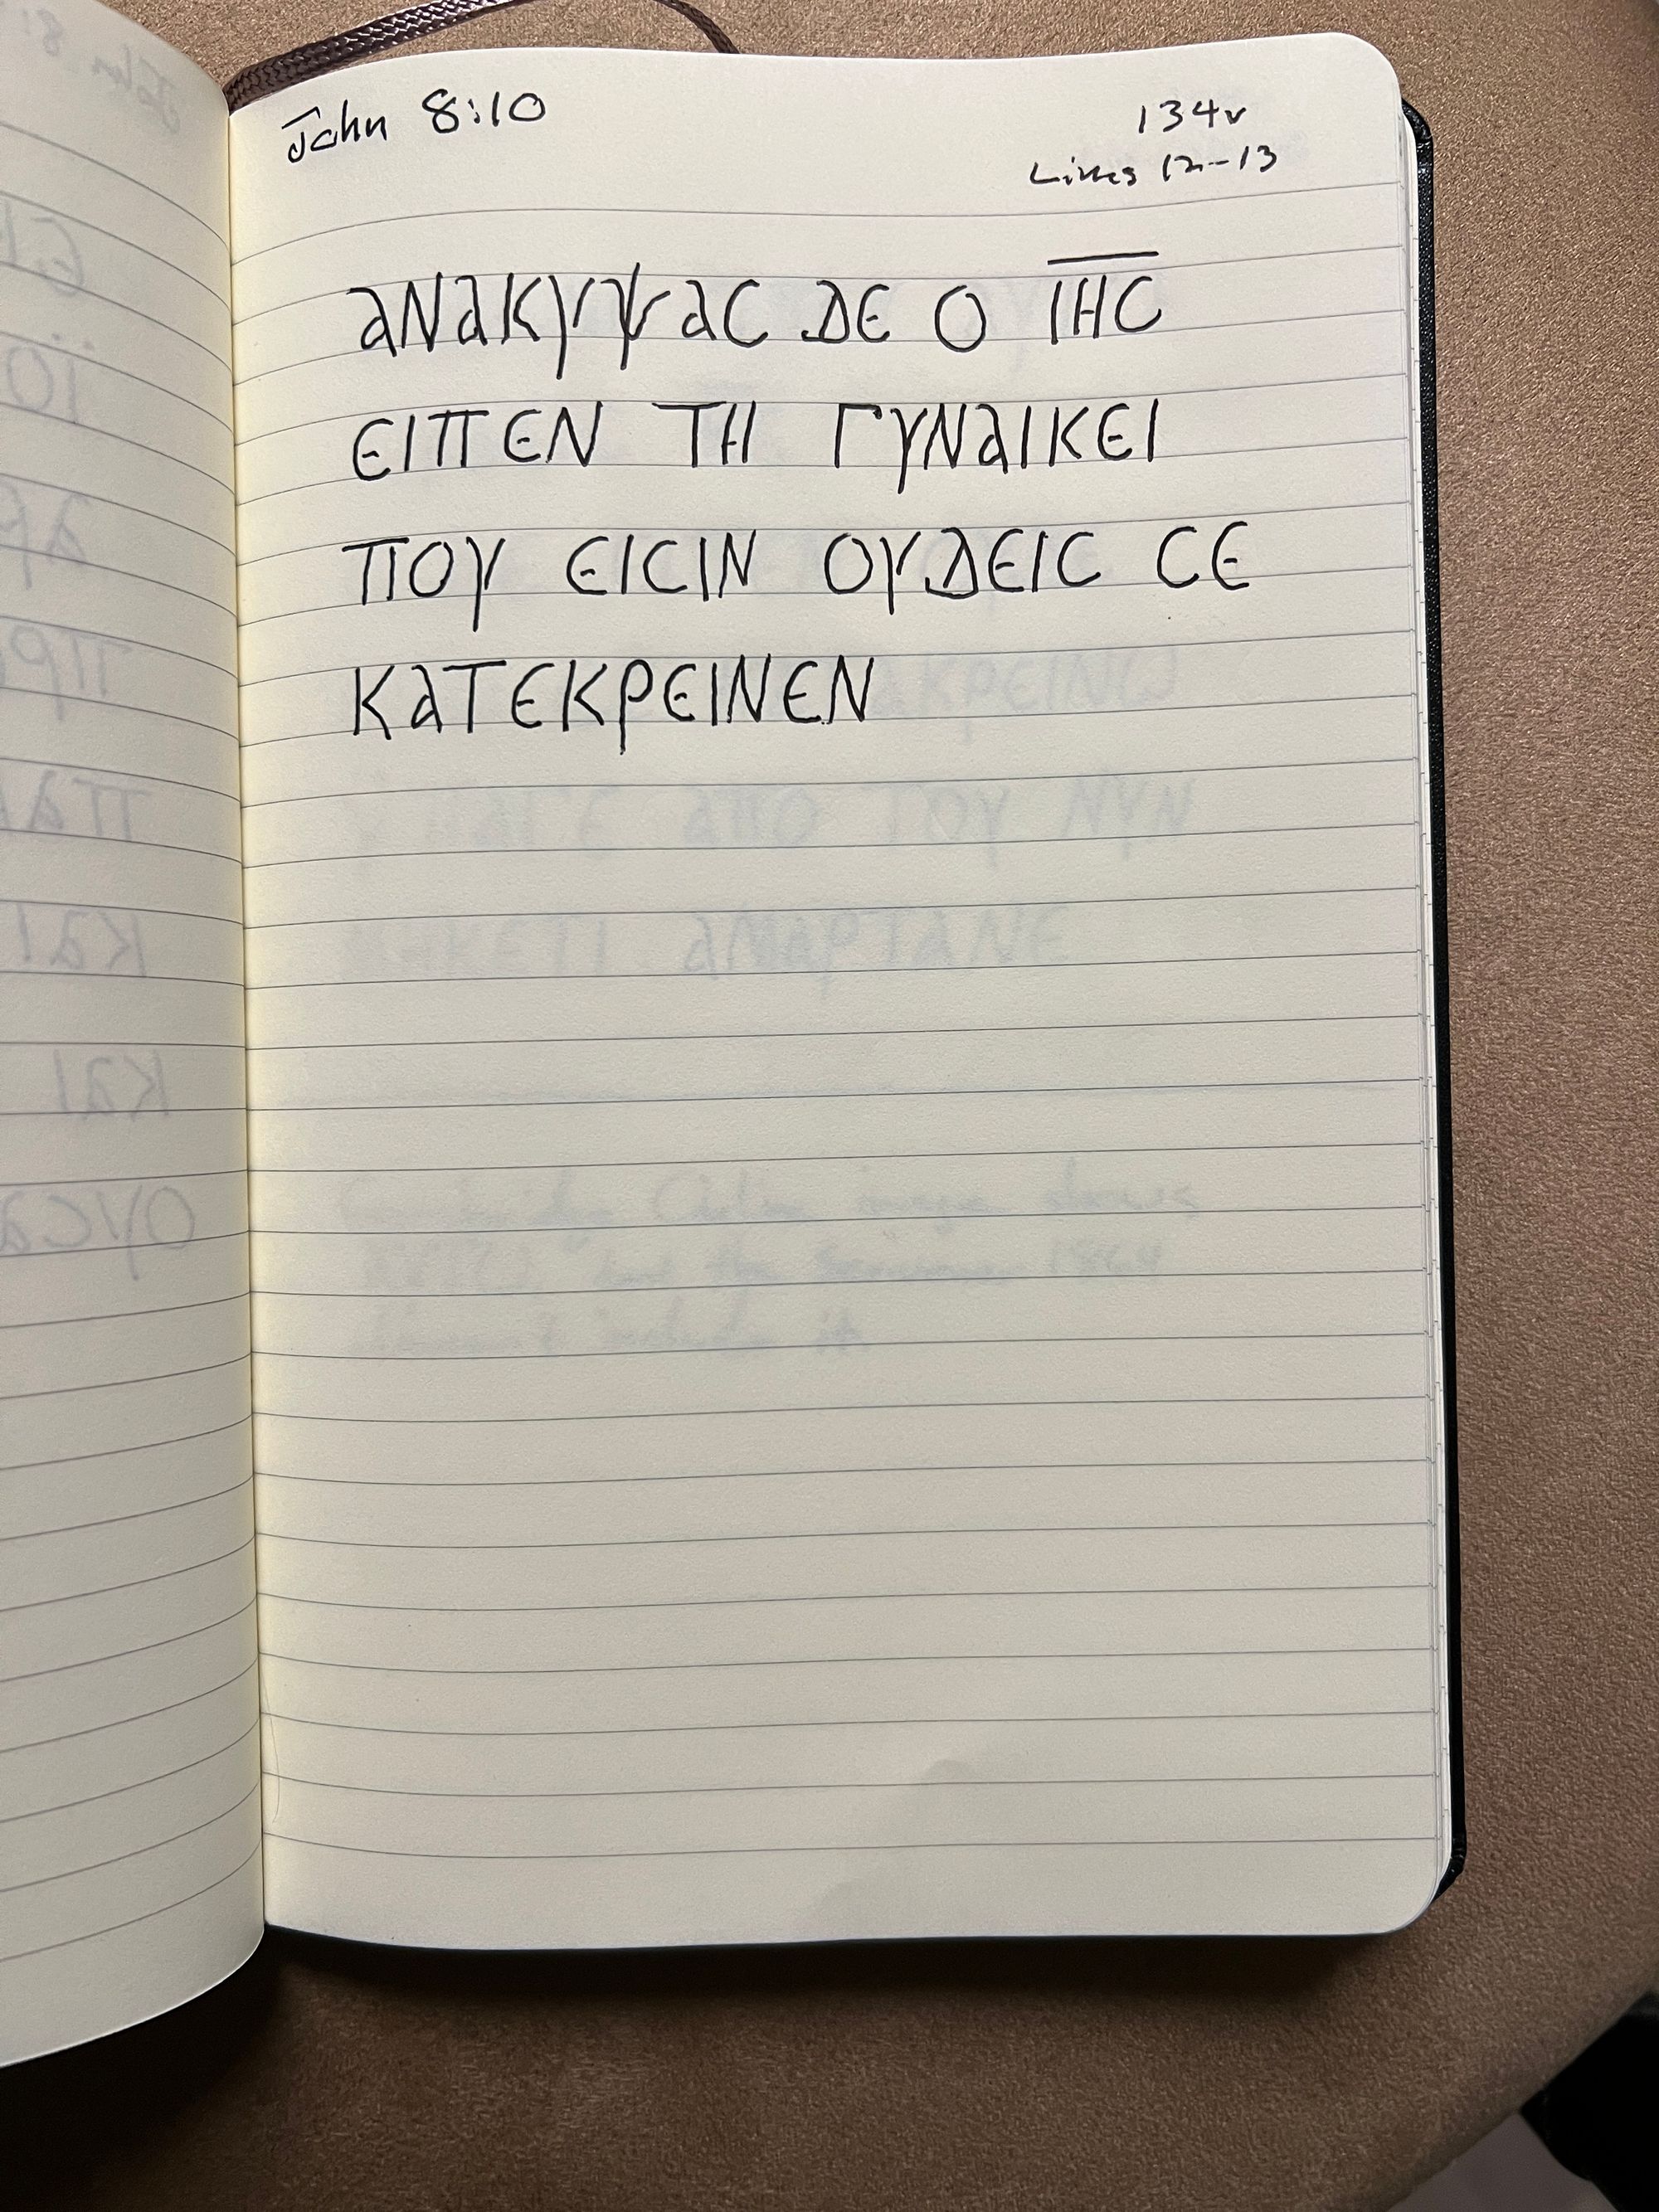 John 8:10
134v
Lines 12-13
ΑΝΑΚΥΨΑϹ ΔΕ Ο Ι̅Η̅Ϲ̅
ΕΙΠΕΝ ΤΗ ΓΥΝΑΙΚΕΙ
ΠΟΥ ΕΙϹΙΝ ΟΥΔΕΙϹ ϹΕ
ΚΑΤΕΚΡΕΙΝΕΝ